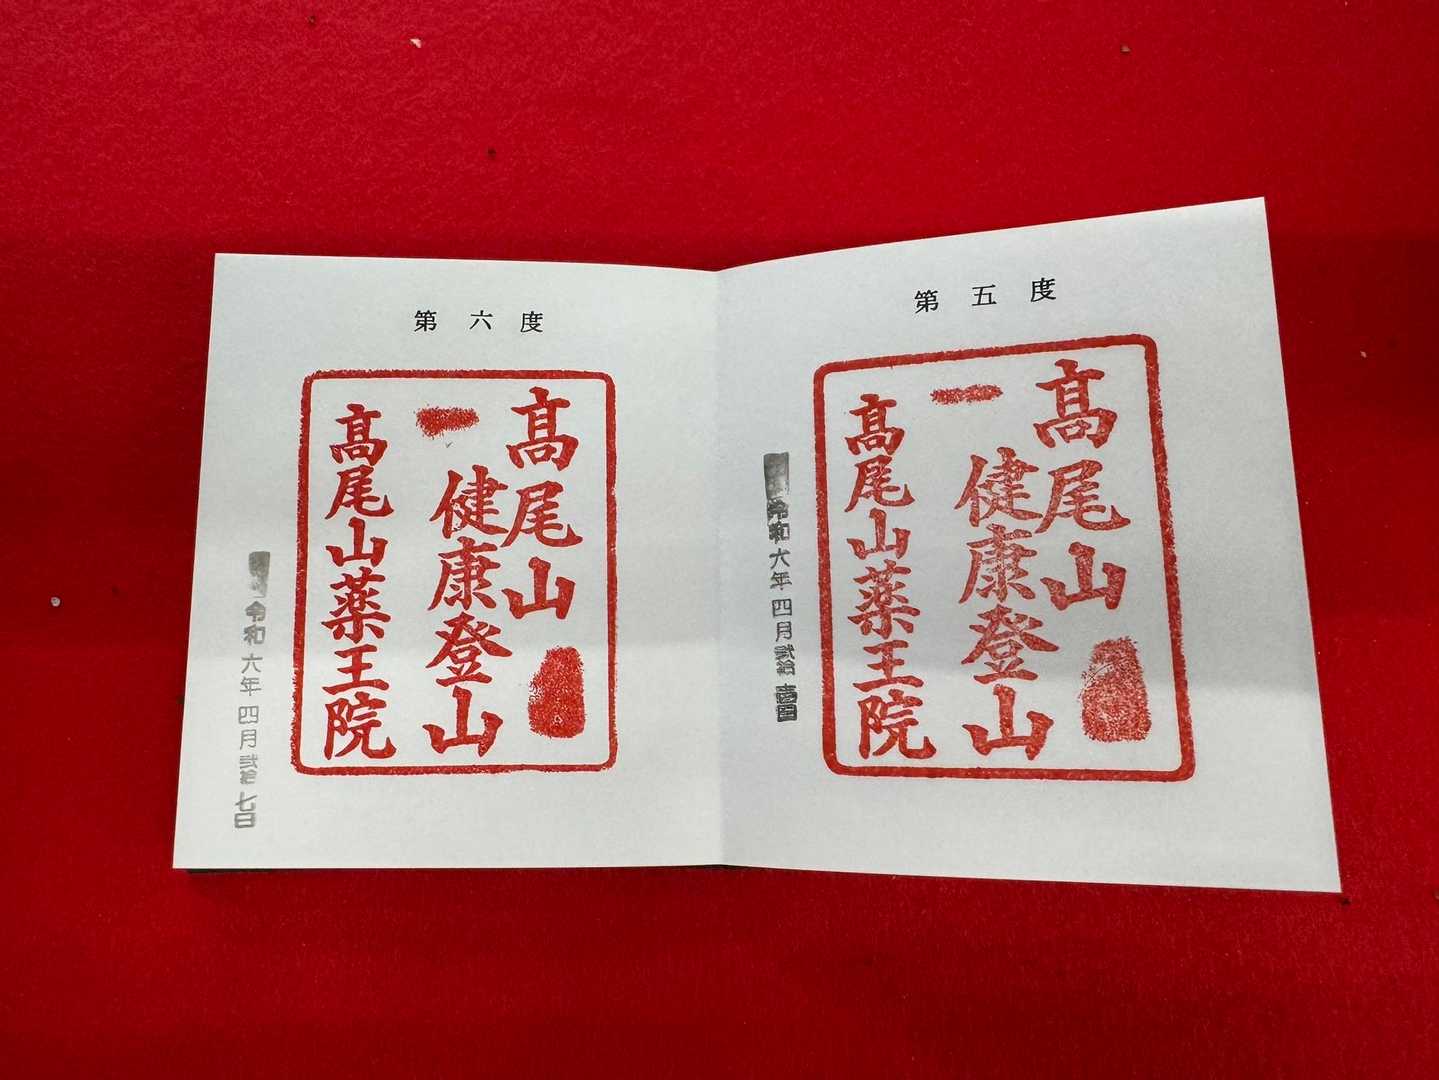 第五度
高尾山
健康登山
高尾山薬王院
令和六年四月弐拾壱日
第六度
高尾山
健康登山
高尾山薬王院
令和六年四月弐拾七日